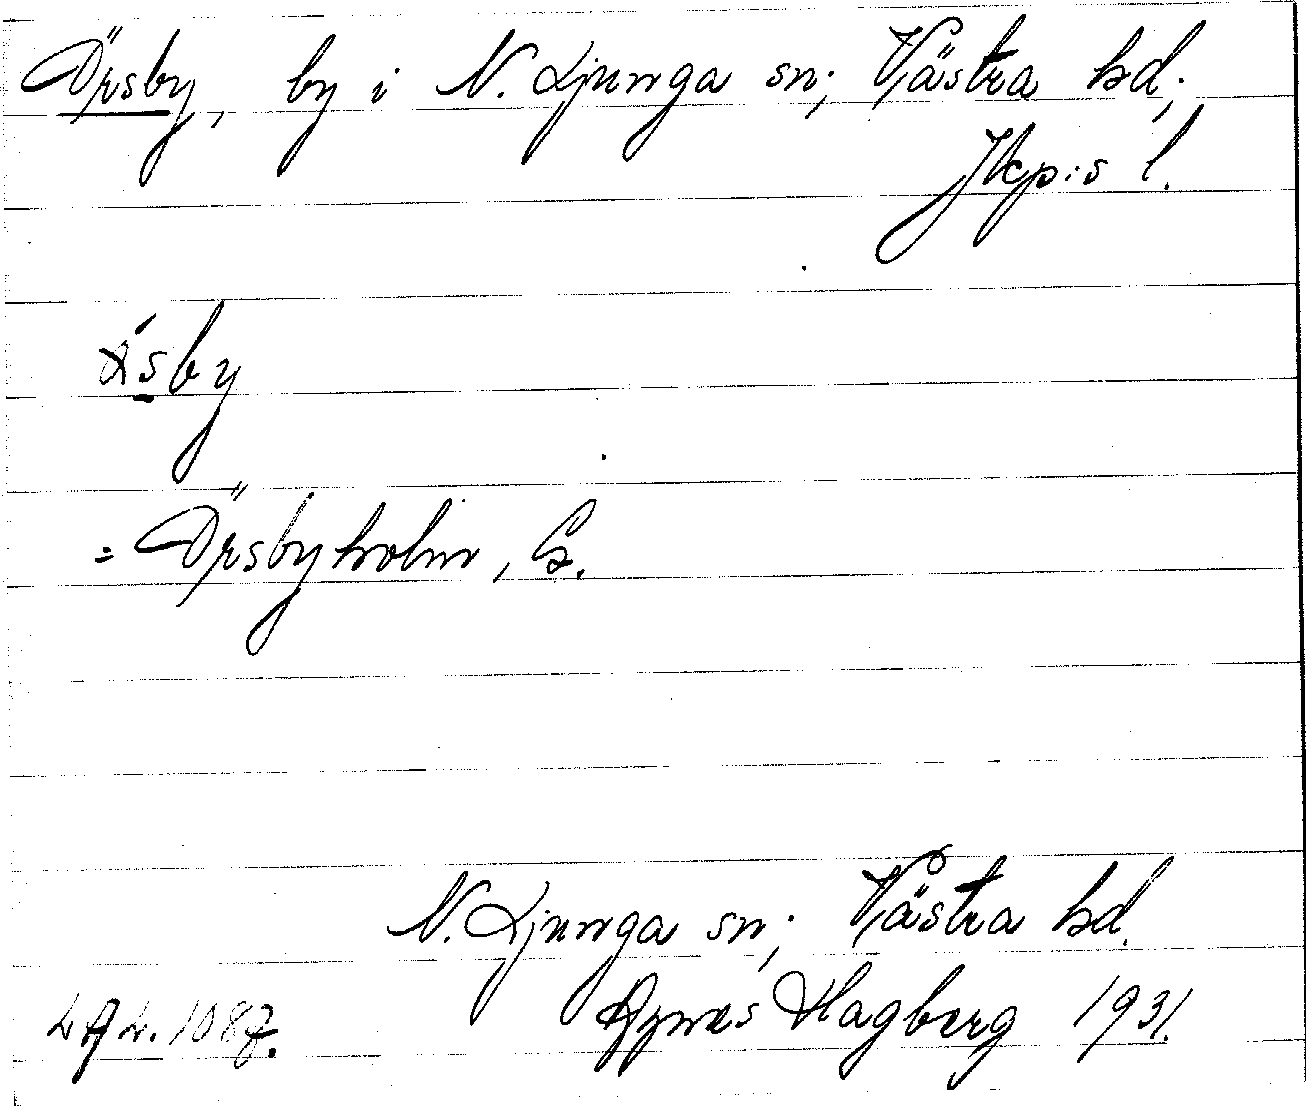 Örsby, by i N. Ljunga sn; Västra hd;
Jkp:s l.
sby
= Örsbyholm, G.
N. Ljunga sn; Västra hd.
Agnes Hagberg 1931.
1087.